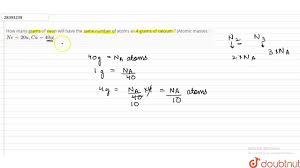 28393239
How many grams of neon will have the same number of atoms as 4 grams of calcium ? (Atomic masses :
Ne = 20u, Ca = 40u)
N₂ N₃
2 × NA 3 × NA
40g = NA atoms
1g = NA/40
4g = NA/40 × 4 = NA/10 atoms
10
doubtnut